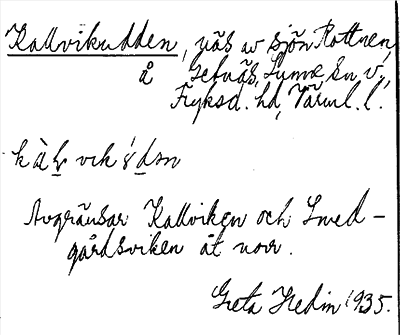 Kallvikudden, näs av sjön Rottnen,
å Getnäs, Lysviks sn v.,
Fryksd. hd, Värml. l.
Avgränsar Kallviken och Smed-
gårdsviken åt norr.
Greta Hedin 1935.